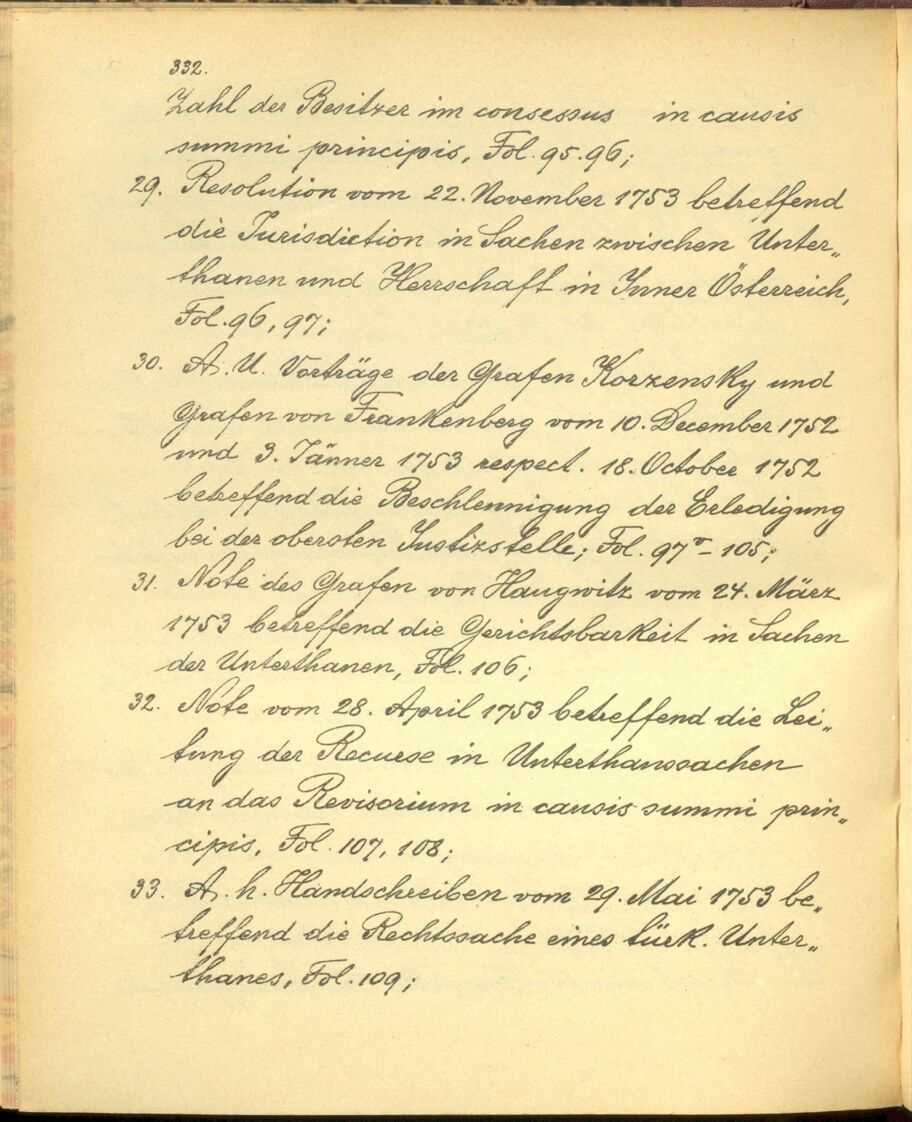 332.
Zahl der Besitzer im consessus in causis
summi principis, Fol. 95.96;
29. Resolution vom 22. November 1753 betreffend
die Jurisdiction in Sachen zwischen Unter„
thanen und Herrschaft in Inner Österreich,
Fol. 96, 97;
30. A. U. Vorträge der Grafen Korzensky und
Grafen von Frankenberg vom 10. December 1752
und 3. Jänner 1753 respect. 18. October 1752
betreffend die Beschleunigung der Erledigung
bei der obersten Justizstelle; Fol. 97v – 105;
31. Note des Grafen von Haugwitz vom 24. März
1753 betreffend die Gerichtsbarkeit in Sachen
der Unterthanen, Fol. 106;
32. Note vom 28. April 1753 betreffend die Lei„
tung der Recurse in Unterthanssachen
an das Revisorium in causis summi prin„
cipis, Fol. 107, 108;
33. A. h. Handschreiben vom 29. Mai 1753 be„
treffend die Rechtssache eines türk. Unter„
thanes, Fol. 109;